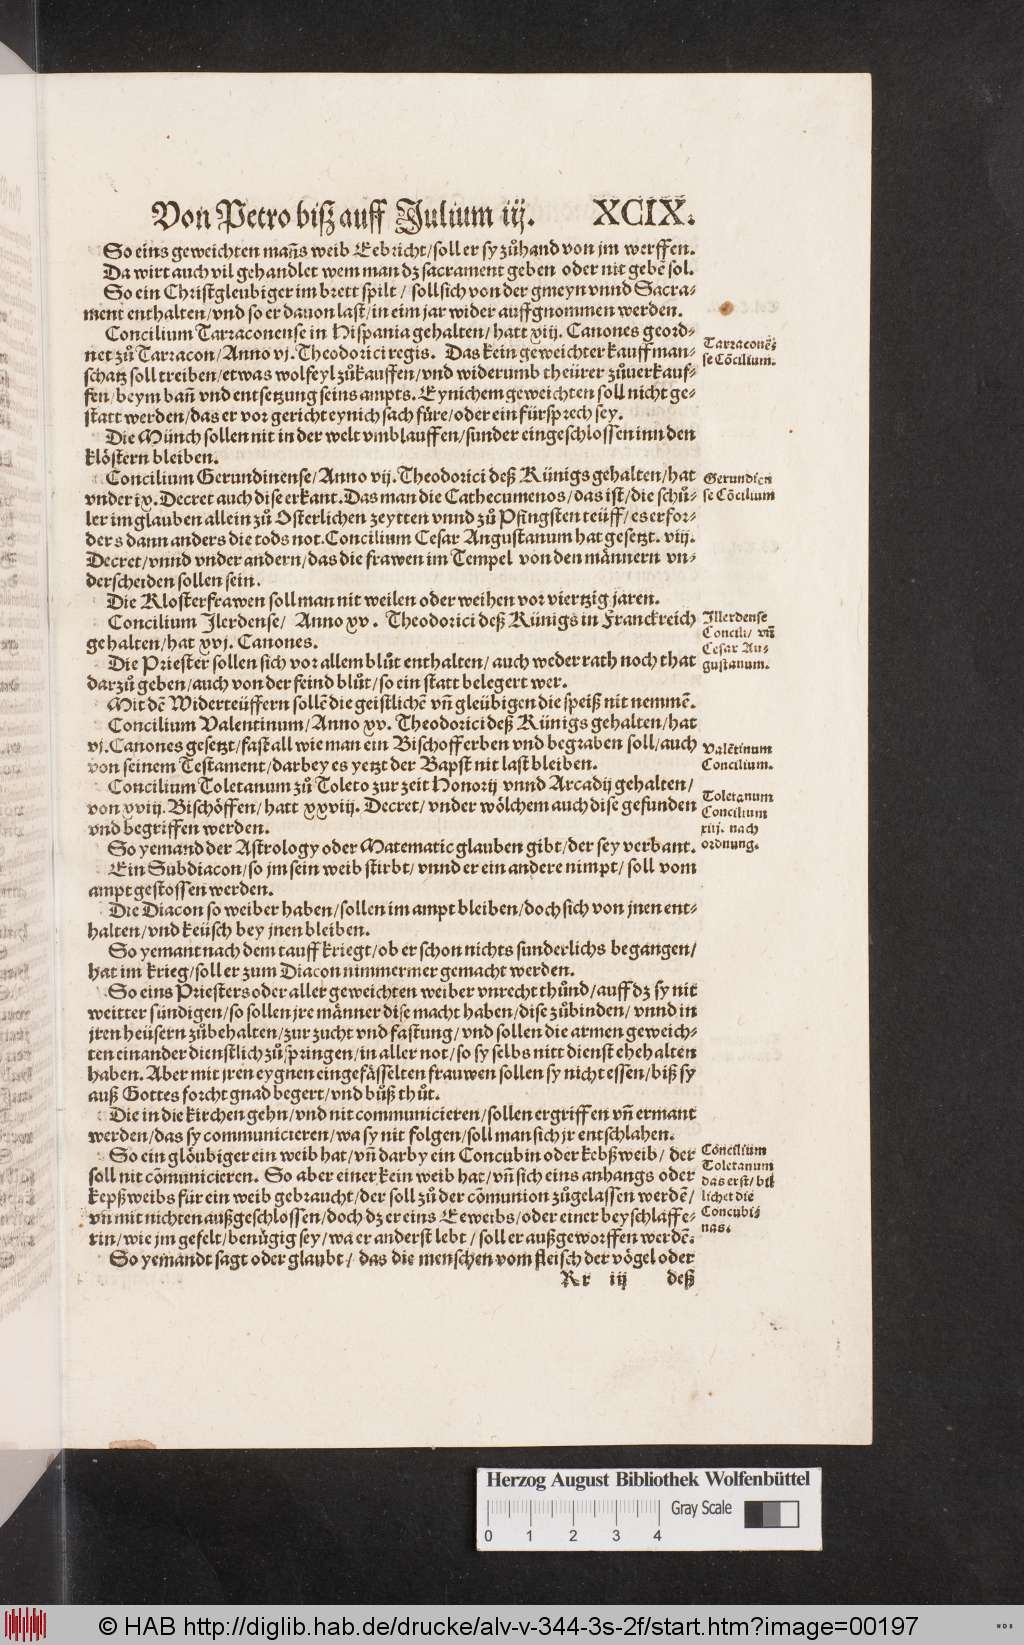 Von Petro biß auff Julium iij. XCIX.
So eins geweichten mañs weib Eebricht/soll er sy zůhand von jm werffen.
Da wirt auch vil gehandlet wem man dz sacrament geben oder nit gebẽ sol.
So ein Christgleubiger im brett spilt / soll sich von der gmeyn vnnd Sacra-
ment enthalten/vnd so er dauon last/in eim jar wider auffgnommen werden.
Concilium Tarraconense in Hispania gehalten/hatt xiij. Canones geord-
net zů Tarracon/Anno vj. Theodorici regis. Das kein geweichter kauffman-
schatz soll treiben/etwas wolfeyl zůkauffen/vnd widerumb theürer zůuerkauf-
fen/beym bañ vnd entsetzung seins ampts. Eynichem geweichten soll nicht ge-
statt werden/das er vor gericht eynich sach füre/oder ein fürsprech sey.
Tarraconẽ-
se Cõcilium.
Die Münch sollen nit in der welt vmblauffen/sunder eingeschlossen inn den
klöstern bleiben.
Concilium Gerundinense/Anno vij. Theodorici deß Künigs gehalten/hat
vnder ix. Decret auch dise erkant. Das man die Cathecumenos/das ist/die schů-
ler im glauben allein zů Osterlichen zeytten vnnd zů Pfingsten teüff/es erfor-
ders dann anders die tods not. Concilium Cesar Angustanum hat gesetzt. viij.
Decret/vnnd vnder andern/das die frawen im Tempel von den männern vn-
derscheiden sollen sein.
Gerundien
se Cõcilium
Die Klosterfrawen soll man nit weilen oder weihen vor viertzig jaren.
Concilium Jlerdense/ Anno xv. Theodorici deß Künigs in Franckreich
gehalten/hat xvj. Canones.
Die Priester sollen sich vor allem blůt enthalten/auch weder rath noch that
darzů geben/auch von der feind blůt/so ein statt belegert wer.
Jllerdense
Concili/ vñ
Cesar Au-
gustanum.
Mit dẽ Widerteüffern sollẽ die geistlichẽ vñ gleübigen die speiß nit nemmẽ.
Concilium Valentinum/Anno xv. Theodorici deß Künigs gehalten/hat
vj. Canones gesetzt/fast all wie man ein Bischoff erben vnd begraben soll/auch
von seinem Testament/darbey es yetzt der Bapst nit last bleiben.
Valẽtinum
Concilium.
Concilium Toletanum zů Toleto zur zeit Honorij vnnd Arcadij gehalten/
von xviij. Bischöffen/hatt xxviij. Decret/vnder wölchem auch dise gefunden
vnd begriffen werden.
Toletanum
Concilium
xiij. nach
ordnung.
So yemand der Astrology oder Matematic glauben gibt/der sey verbant.
Ein Subdiacon/so jm sein weib stirbt/vnnd er ein andere nimpt/soll vom
ampt gestossen werden.
Die Diacon so weiber haben/sollen im ampt bleiben/doch sich von jnen ent-
halten/vnd keüsch bey jnen bleiben.
So yemant nach dem tauff kriegt/ob er schon nichts sunderlichs begangen/
hat im krieg/soll er zum Diacon nimmermer gemacht werden.
So eins Priesters oder aller geweichten weiber vnrecht thůnd/auff dz sy nit
weitter sündigen/so sollen jre männer dise macht haben/dise zůbinden/vnnd in
jren heüsern zůbehalten/zur zucht vnd fastung/vnd sollen die armen geweich-
ten einander dienstlich zů springen/in aller not/so sy selbs nitt dienst ehehalten
haben. Aber mit jren eygnen eingefässelten frauwen sollen sy nicht essen/biß sy
auß Gottes forcht gnad begert/vnd bůß thůt.
Die in die kirchen gehn/vnd nit communicieren/sollen ergriffen vñ ermant
werden/das sy communicieren/wa sy nit folgen/soll man sich jr entschlahen.
So ein glöubiger ein weib hat/vñ darby ein Concubin oder kebßweib/ der
soll nit cõmunicieren. So aber einer kein weib hat/vñ sich eins anhangs oder
kepßweibs für ein weib gebraucht/der soll zů der cõmunion zůgelassen werdẽ/
vñ mit nichten außgeschlossen/doch dz er eins Eeweibs/oder einer beyschläffe-
rin/wie jm gefelt/benügig sey/wa er anderst lebt/soll er außgeworffen werdẽ.
Cõncilium
Toletanum
das erst/bil
lichet die
Concubi-
nas.
So yemandt sagt oder glaubt/ das die menschen vom fleisch der vögel oder
Rr iij deß
Herzog August Bibliothek Wolfenbüttel
Gray Scale
0 1 2 3 4
© HAB http://diglib.hab.de/drucke/alv-v-344-3s-2f/start.htm?image=00197